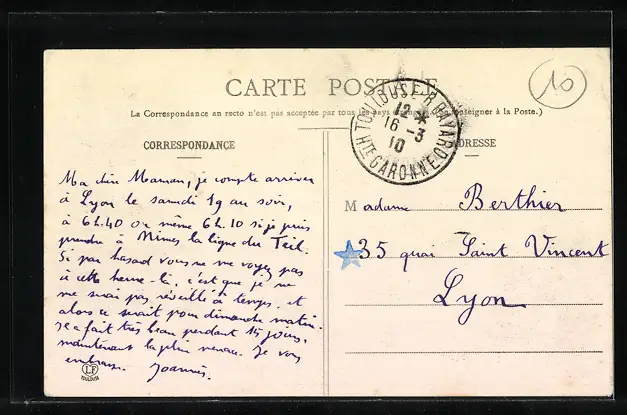 10
CARTE POSTALE
La Correspondance au recto n'est pas acceptée par tous les pays étrangers (Se renseigner à la Poste.)
CORRESPONDANCE
ADRESSE
TOULOUSE-R BAYARD
12 *
16 -3
10
HTE GARONNE
Ma chère Maman, je compte arriver
à Lyon le samedi 19 au soir,
à 6h.40 ou même 6h.10 si je puis
prendre à Nimes la ligne du Teil.
Si par hasard vous ne me voyez pas
à cette heure-là, c'est que je ne
me serai pas réveillé à temps, et
alors ce serait pour dimanche matin.
Il a fait très beau pendant 15 jours,
maintenant la pluie menace. Je vous
embrasse. Joannès.
Madame Berthier
35 quai Saint Vincent
Lyon
LF
TOULOUSE